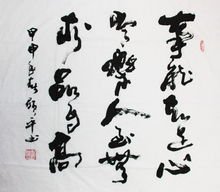 事能知足心
常樂人至無
求品自高
甲申